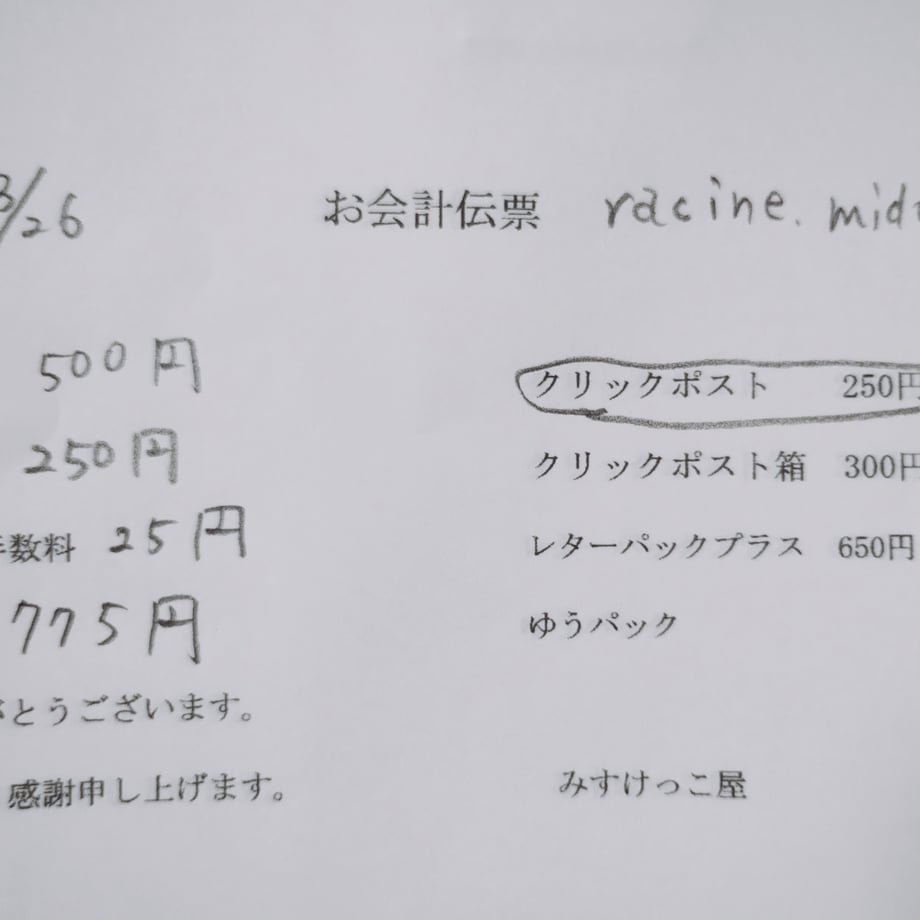 3/26 お会計伝票 racine. mid
500円 クリックポスト 250円
250円 クリックポスト箱 300円
手数料 25円 レターパックプラス 650円
775円 ゆうパック
がとうございます。
感謝申し上げます。 みすけっこ屋